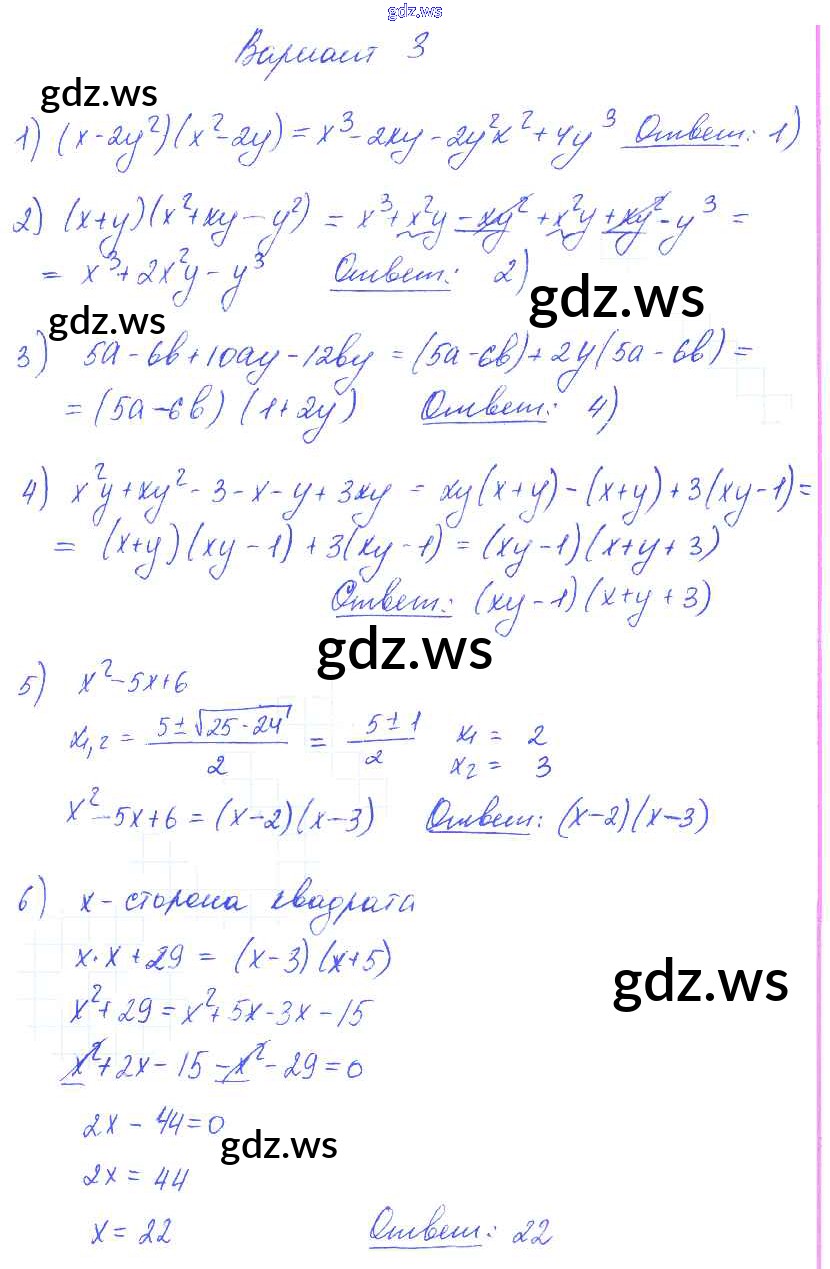 gdz.ws
Вариант 3
gdz.ws
1) (x-2y²)(x²-2y) = x³-2xy-2y²x²+4y³ Ответ: 1)
2) (x+y)(x²+xy-y²) = x³+x²y-xy²+x²y+xy²-y³ =
= x³+2x²y-y³ Ответ: 2)
gdz.ws
gdz.ws
3) 5a-6b+10ay-12by = (5a-6b)+2y(5a-6b) =
= (5a-6b)(1+2y) Ответ: 4)
4) x²y+xy²-3-x-y+3xy = xy(x+y)-(x+y)+3(xy-1) =
= (x+y)(xy-1)+3(xy-1) = (xy-1)(x+y+3)
Ответ: (xy-1)(x+y+3)
gdz.ws
5) x²-5x+6
x₁,₂ = (5±√25-24)/2 = (5±1)/2 x₁ = 2
x₂ = 3
x²-5x+6 = (x-2)(x-3) Ответ: (x-2)(x-3)
6) x - сторона квадрата
x·x+29 = (x-3)(x+5)
gdz.ws
x²+29 = x²+5x-3x-15
x²+2x-15-x²-29=0
2x-44=0
gdz.ws
2x = 44
x = 22 Ответ: 22